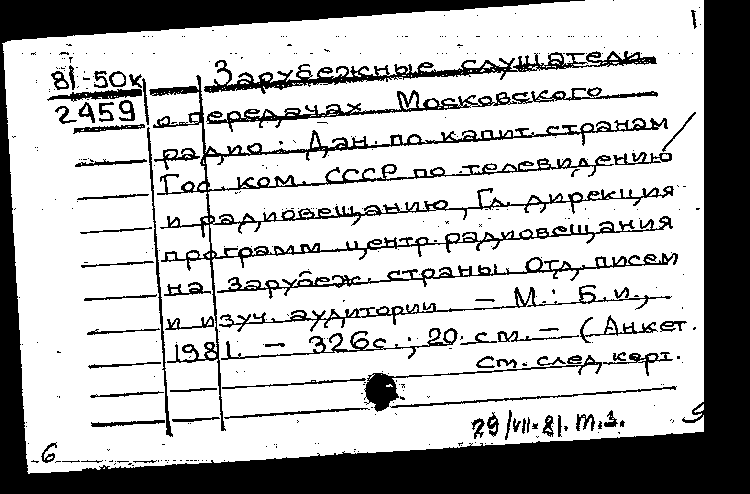 1
81-50к Зарубежные слушатели
2459 о передачах Московского
радио : Дан. по капит. странам /
Гос. ком. СССР по телевидению
и радиовещанию, Гл. дирекция
программ центр. радиовещания
на зарубеж. страны. Отд. писем
и изуч. аудитории. — М.: Б.и.,
1981. — 326с.; 20 см. — (Анкет.
См. след. карт.
29/VII-81. т.з.
6